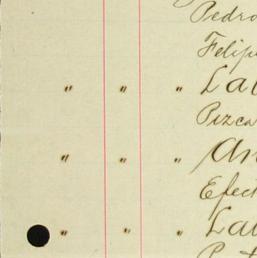 Pedro
Felip
" " " Lau
Pizca
" " " An
Efect
" " " Lau